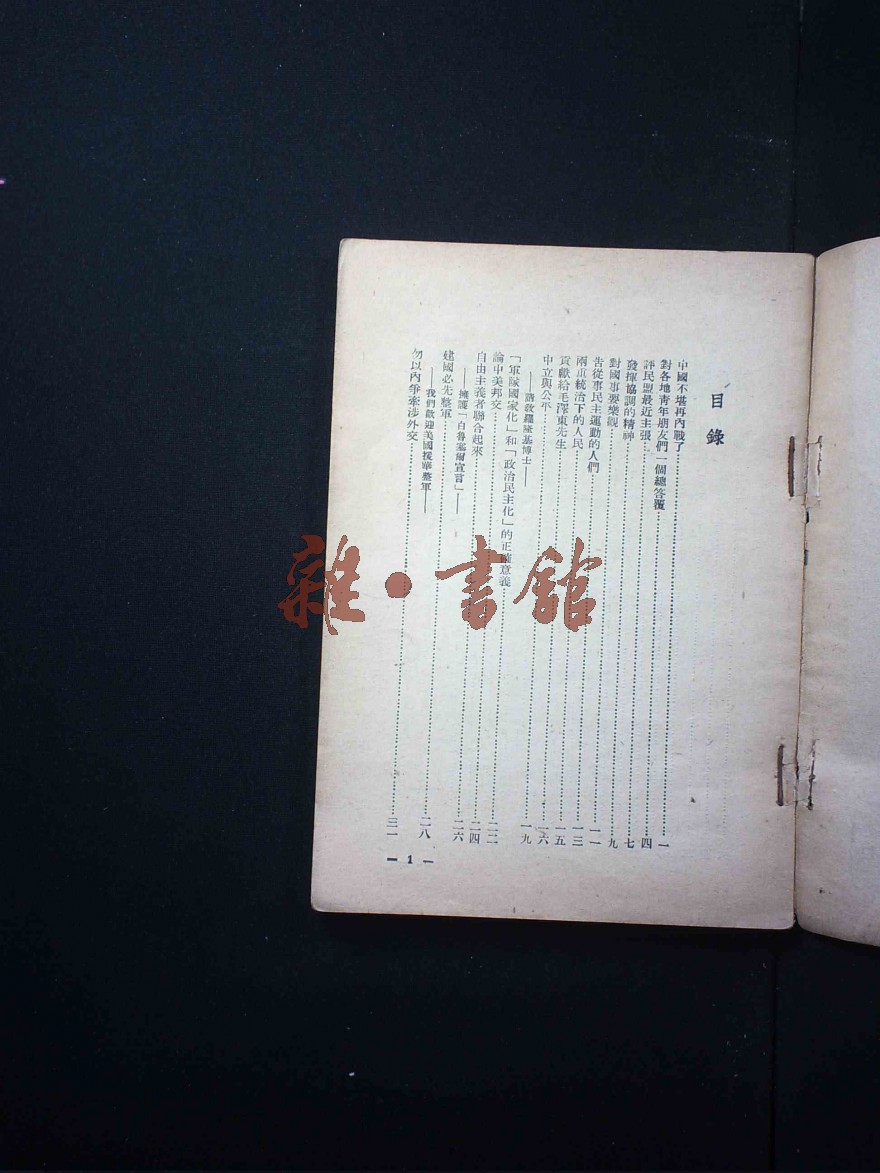 目錄
中國不堪再內戰了……一
對各地青年朋友們一個總答覆……四
評民盟最近主張……七
發揮協調的精神……九
對國事要樂觀……一一
告從事民主運動的人們……一三
兩重統治下的人民……一五
貢獻給毛澤東先生……一六
中立與公平……一九
——請教羅隆基博士——
「軍隊國家化」和「政治民主化」的正確意義……二二
論中美邦交……二四
自由主義者聯合起來……二六
——擁護「白魯塞爾宣言」——
建國必先整軍……二八
——我們歡迎美國援華整軍——
勿以內爭牽涉外交……三一
— 1 —
雜·書館